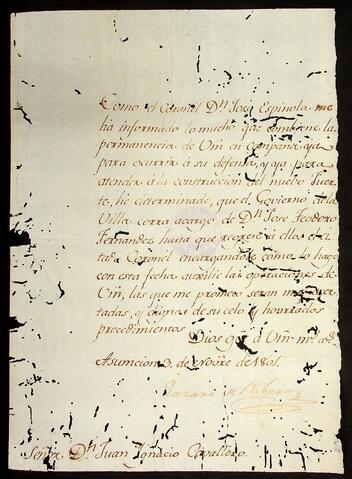 Como el Coronel Dn. Josa Espinola me
ha informado lo mucho que combiene la
permanencia de Vm en Campaña ya
para ocurrir à su defensa, y ya para
atender à la construccion del nuebo Fuerte,
he determinado, que el Govierno de la
Villa corra acargo de Dn. Jose Teodoro
Fernandez hasta que regrese à ella el ci-
tado Coronel encargandole como lo hago
con esta fecha auxilie las operaciones de
Vm, las que me prometo seran mui acer-
tadas, y dignas de su celo y honrrados
procedimientos
Dios gue. à Vm. ms. as.
Asuncion 3 de Novre. de 1801.
Lazaro de Ribera
Señor Dn. Juan Ignacio Cavallero.